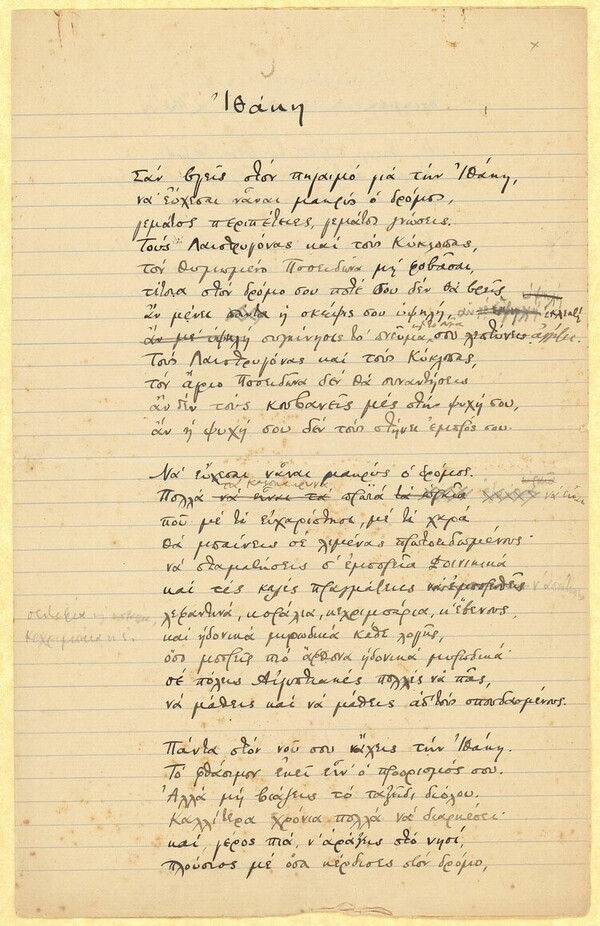 Ἰθάκη
Σὰν βγεῖς στὸν πηγαιμὸ γιὰ τὴν Ἰθάκη,
νὰ εὔχεσαι νἆναι μακρὺς ὁ δρόμος,
γεμάτος περιπέτειες, γεμάτος γνώσεις.
Τοὺς Λαιστρυγόνας καὶ τοὺς Κύκλωπας,
τὸν θυμωμένο Ποσειδῶνα μὴ φοβᾶσαι,
τέτοια στὸν δρόμο σου ποτέ σου δὲν θὰ βρεῖς
ὑψηλή
ἂν μένει πάντα ἡ σκέψις σου ὑψηλή, ἂν ἐκλεκτὴ
ἂν μὲ ὑψηλὴ συγκίνησις τὸ πνεῦμα σου ἀγγίζει.
Τοὺς Λαιστρυγόνας καὶ τοὺς Κύκλωπας,
τὸν ἄγριο Ποσειδῶνα δὲν θὰ συναντήσεις
ἂν δὲν τοὺς κουβανεῖς μὲς στὴν ψυχή σου,
ἂν ἡ ψυχή σου δὲν τοὺς στήνει ἐμπρός σου.
Νὰ εὔχεσαι νἆναι μακρὺς ὁ δρόμος.
τὰ καλοκαιρινὰ
Πολλὰ νὰ εἶναι τὰ πρωϊὰ νὰ εἶναι
ποῦ μὲ τί εὐχαρίστησι, μὲ τί χαρὰ
θὰ μπαίνεις σὲ λιμένας πρωτοειδωμένους·
νὰ σταματήσεις σ' ἐμπορεῖα Φοινικικὰ
καὶ τὲς καλὲς πραγμάτειες
σεντέφια
κεχριμπάρια
λεχαντινά, κοράλλια, κεχριμπάρια, κ' ἔβενους,
καὶ ἡδονικὰ μυρωδικὰ κάθε λογῆς,
ὅσο μπορεῖς πιὸ ἄφθονα ἡδονικὰ μυρωδικά·
σὲ πόλεις Αἰγυπτιακὲς πολλὲς νὰ πᾶς,
νὰ μάθεις καὶ νὰ μάθεις ἀπ' τοὺς σπουδασμένους.
Πάντα στὸν νοῦ σου νἄχεις τὴν Ἰθάκη.
Τὸ φθάσιμον ἐκεῖ εἶν' ὁ προορισμός σου.
Ἀλλὰ μὴ βιάζεις τὸ ταξεῖδι διόλου.
Καλλίτερα χρόνια πολλὰ νὰ διαρκέσει·
καί, γέρος πιά, ν' ἀράξεις στὸ νησί,
πλούσιος μὲ ὅσα κέρδισες στὸν δρόμο,